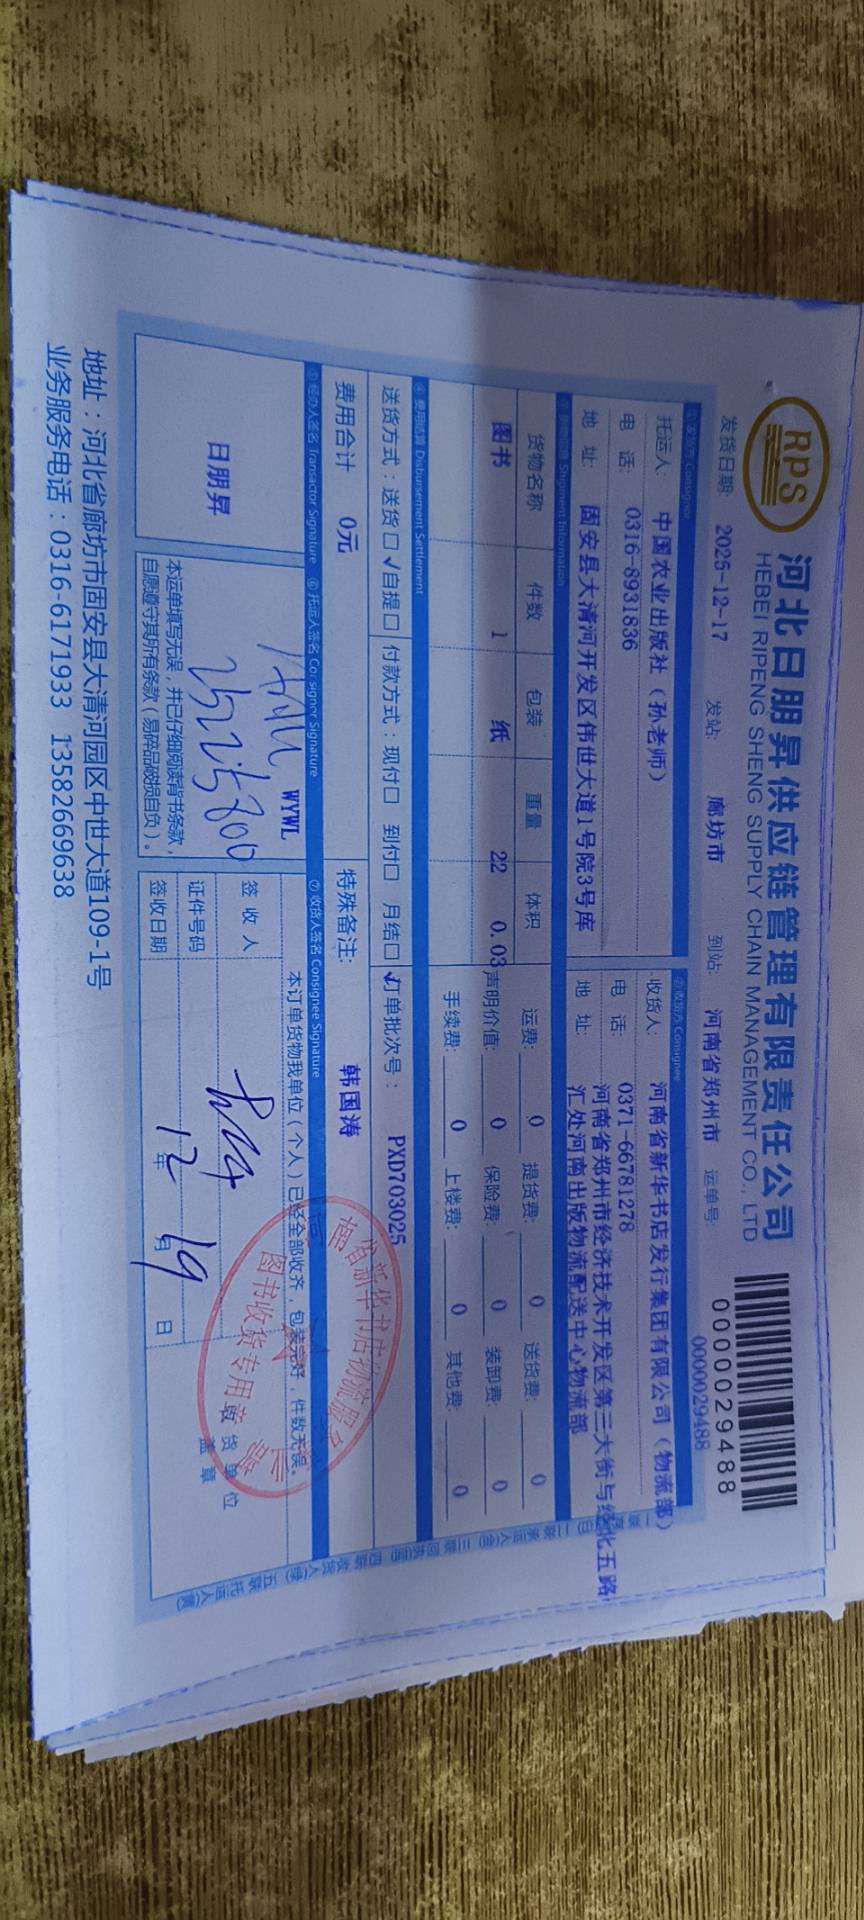 RPS
河北日朋昇供应链管理有限责任公司
HEBEI RIPENG SHENG SUPPLY CHAIN MANAGEMENT CO., LTD
0000029488
发货日期: 2025-12-17 发站: 廊坊市 到站: 河南省郑州市 运单号: 0000029488
①发货方 Consignor ②收货方 Consignee
托运人: 中国农业出版社（孙老师） 收货人: 河南省新华书店发行集团有限公司（物流部）
电 话: 0316-8931836 电 话: 0371-66781278
地 址: 固安县大清河开发区伟世大道1号院3号库 地 址: 河南省郑州市经济技术开发区第三大街与经北五路
汇处河南出版物流配送中心物流部
Shipment Information
货物名称 件数 包装 重量 体积 运费: 0 提货费: 0 送货费: 0
图书 1 纸 22 0.03 声明价值: 0 保险费: 0 装卸费: 0
手续费: 0 上楼费: 0 其他费: 0
④费用结算 Disbursement Settlement
送货方式：送货□ √自提□ 付款方式：现付□ 到付□ 月结□ √订单批次号： PXD703025
费用合计 0元 特殊备注: 韩国涛
⑤经办人签名 Transactor Signature ⑥托运人签名 Consignor Signature ⑦收货人签名 Consignee Signature
日朋昇
WYWL
本运单填写无误，并已仔细阅读背书条款，
自愿遵守其所有条款（易碎品破损自负）。
本订单货物我单位（个人）已经全部收齐，包装完好，件数无误。
签 收 人
证件号码
签收日期 12 年 月 19 日
收货单位
盖章
南省新华书店物流服务
图书收货专用章
地址：河北省廊坊市固安县大清河园区中世大道109-1号
业务服务电话：0316-6171933 13582669638